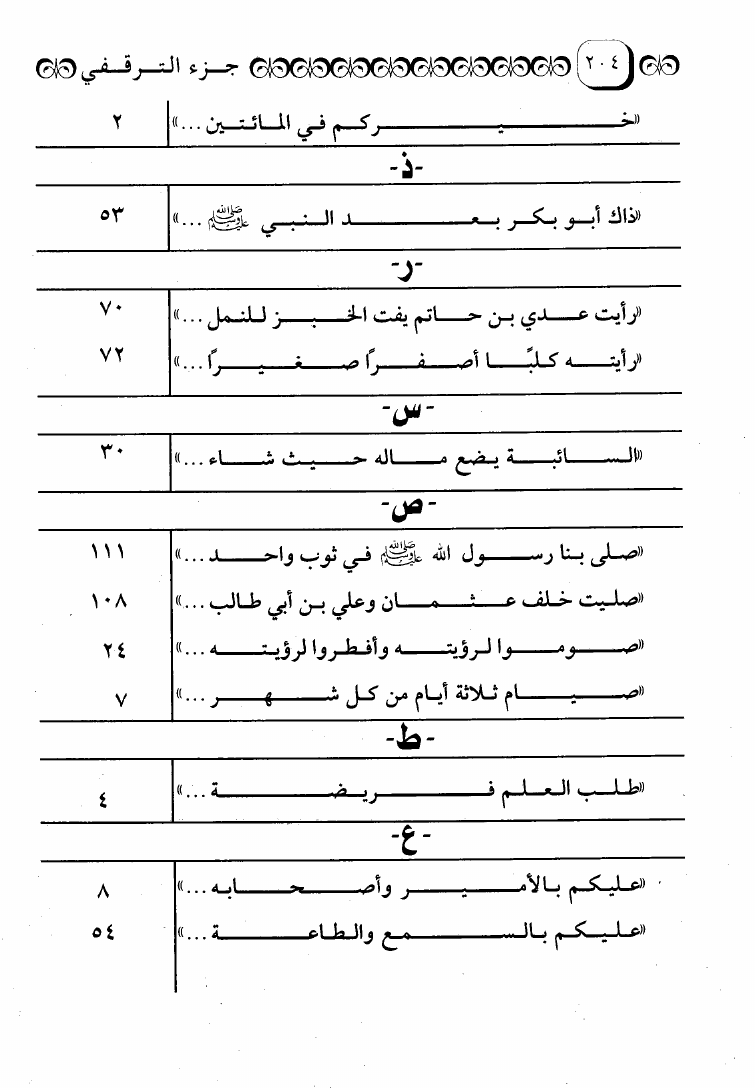 ٢٠٤ جزء الترقفي
«خيركم في المائتين ...» ٢
-ذ-
«ذاك أبو بكر بعد النبي ﷺ ...» ٥٣
-ر-
«رأيت عدي بن حاتم يفت الخبز للنمل ...» ٧٠
«رأيته كلبًا أصفرًا صغيرًا ...» ٧٢
-س-
«السائبة يضع ماله حيث شاء ...» ٣٠
-ص-
«صلى بنا رسول الله ﷺ في ثوب واحد ...» ١١١
«صليت خلف عثمان وعلي بن أبي طالب ...» ١٠٨
«صوموا لرؤيته وأفطروا لرؤيته ...» ٢٤
«صيام ثلاثة أيام من كل شهر ...» ٧
-ط-
«طلب العلم فريضة ...» ٤
-ع-
«عليكم بالأمير وأصحابه ...» ٨
«عليكم بالسمع والطاعة ...» ٥٤